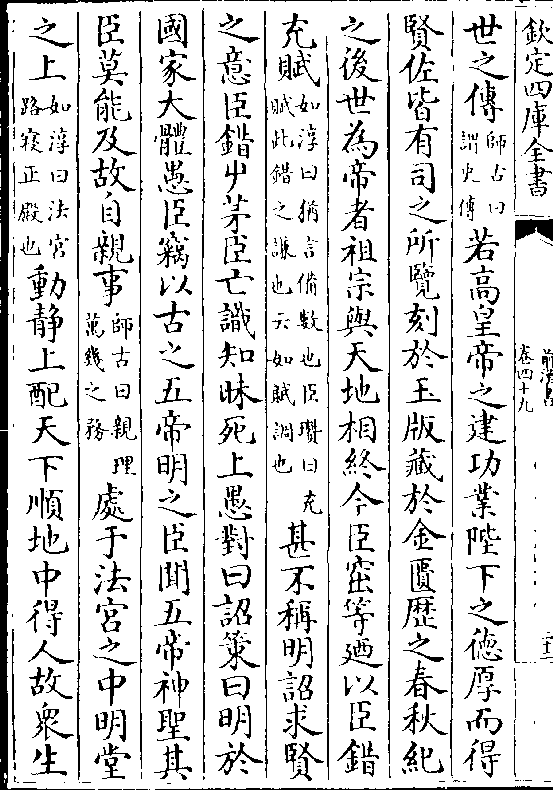 欽定四庫全書
前漢書
卷四十九
世之傳師古曰謂史傳若高皇帝之建功業陛下之德厚而得
賢佐皆有司之所覽刻於玉版藏於金匱歴之春秋紀
之後世為帝者祖宗與天地相終今臣窋等廼以臣錯
充賦如淳曰猶言備數也臣瓚曰充賦此錯之謙也云如賦調也甚不稱明詔求賢
之意臣錯屮茅臣亡識知昧死上愚對曰詔策曰明於
國家大體愚臣竊以古之五帝明之臣聞五帝神聖其
臣莫能及故自親事師古曰親理萬幾之務處于法宮之中明堂
之上如淳曰法宮路寢正殿也動静上配天下順地中得人故衆生